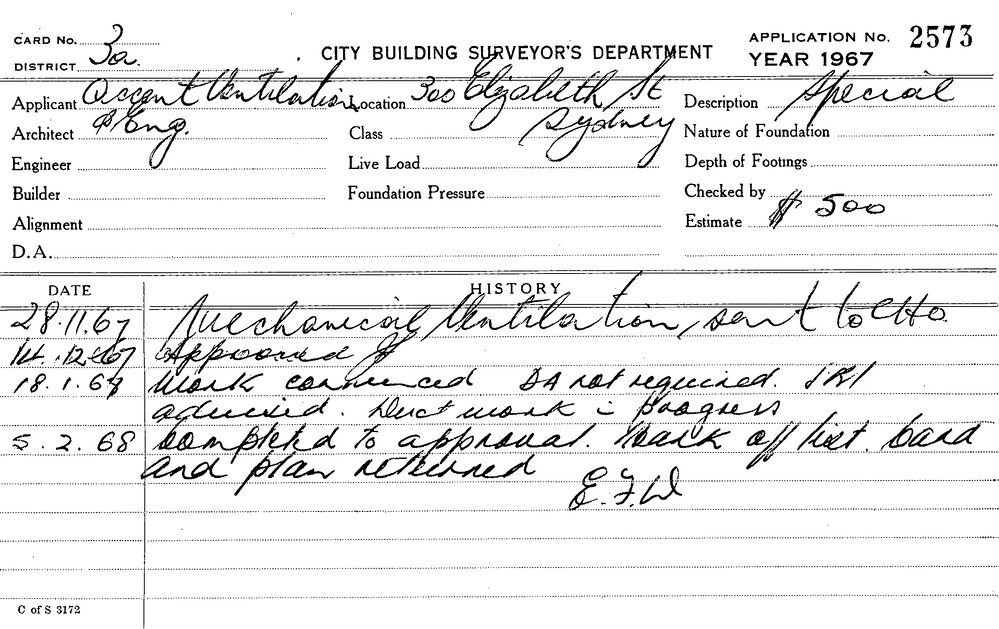 CARD No. 3a
DISTRICT 3a.
CITY BUILDING SURVEYOR'S DEPARTMENT
APPLICATION No. 2573
YEAR 1967
Applicant Accent Ventilation Location 300 Elizabeth St Description Special
Architect & Eng. Class Sydney Nature of Foundation
Engineer Live Load Depth of Footings
Builder Foundation Pressure Checked by
Alignment Estimate $ 500
D.A.
DATE HISTORY
28.11.67 Mechanical Ventilation, sent to CHO.
14.12.67 Approved
18.1.68 Work commenced DA not required.
advised. Duct work in progress
5.2.68 Completed to approval. Mark off list. Card
and plan returned
E.F.W
C of S 3172